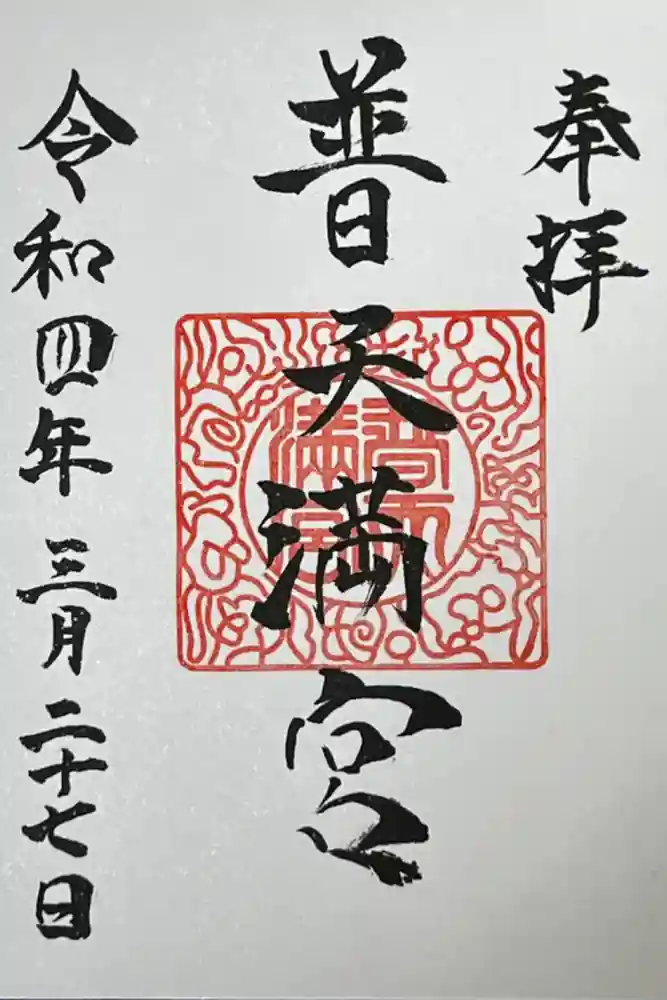 奉拝
普天満宮
普天満宮
令和四年三月二十七日